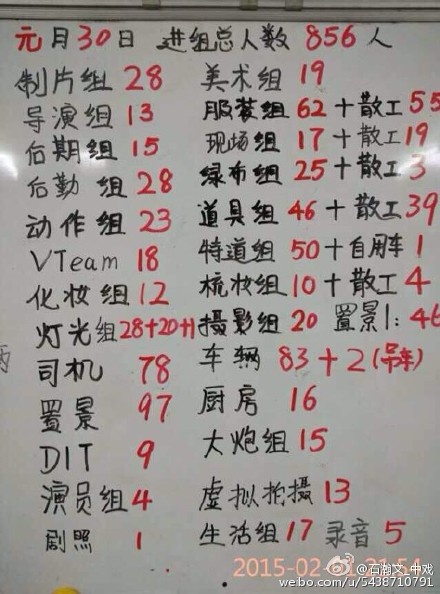 元月30日 进组总人数 856人
制片组 28 美术组 19
导演组 13 服装组 62+散工 55
后期组 15 现场组 17+散工 19
后勤组 28 绿布组 25+散工 3
动作组 23 道具组 46+散工 39
VTeam 18 特道组 50+自用车 1
化妆组 12 梳妆组 10+散工 4
灯光组 28+20+11 摄影组 20 置景1:46
司机 78 车辆 83+2(吊车)
置景 97 厨房 16
DIT 9 大炮组 15
演员组 4 虚拟拍摄 13
剧照 1 生活组 17 录音 5
@石瀚文_中戏
weibo.com/u/5438710791